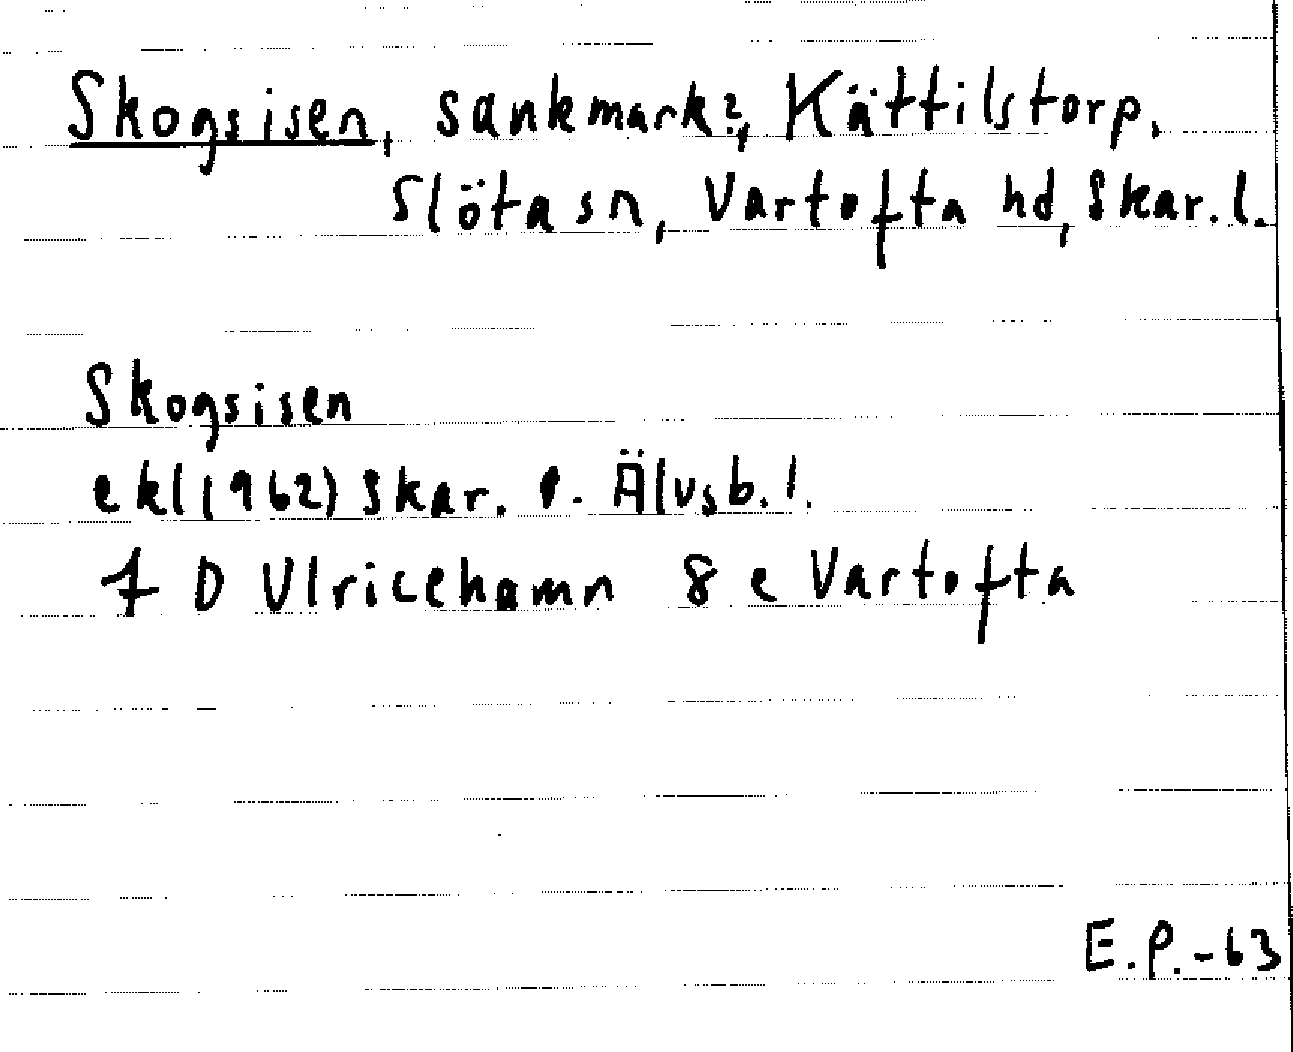 Skogsisen, sankmark?, Kättilstorp,
Slöta sn, Vartofta hd, Skar. l.
Skogsisen
ekl (1962) Skar. o. Älvsb. l.
7 D Ulricehamn 8 e Vartofta
E.P.-63